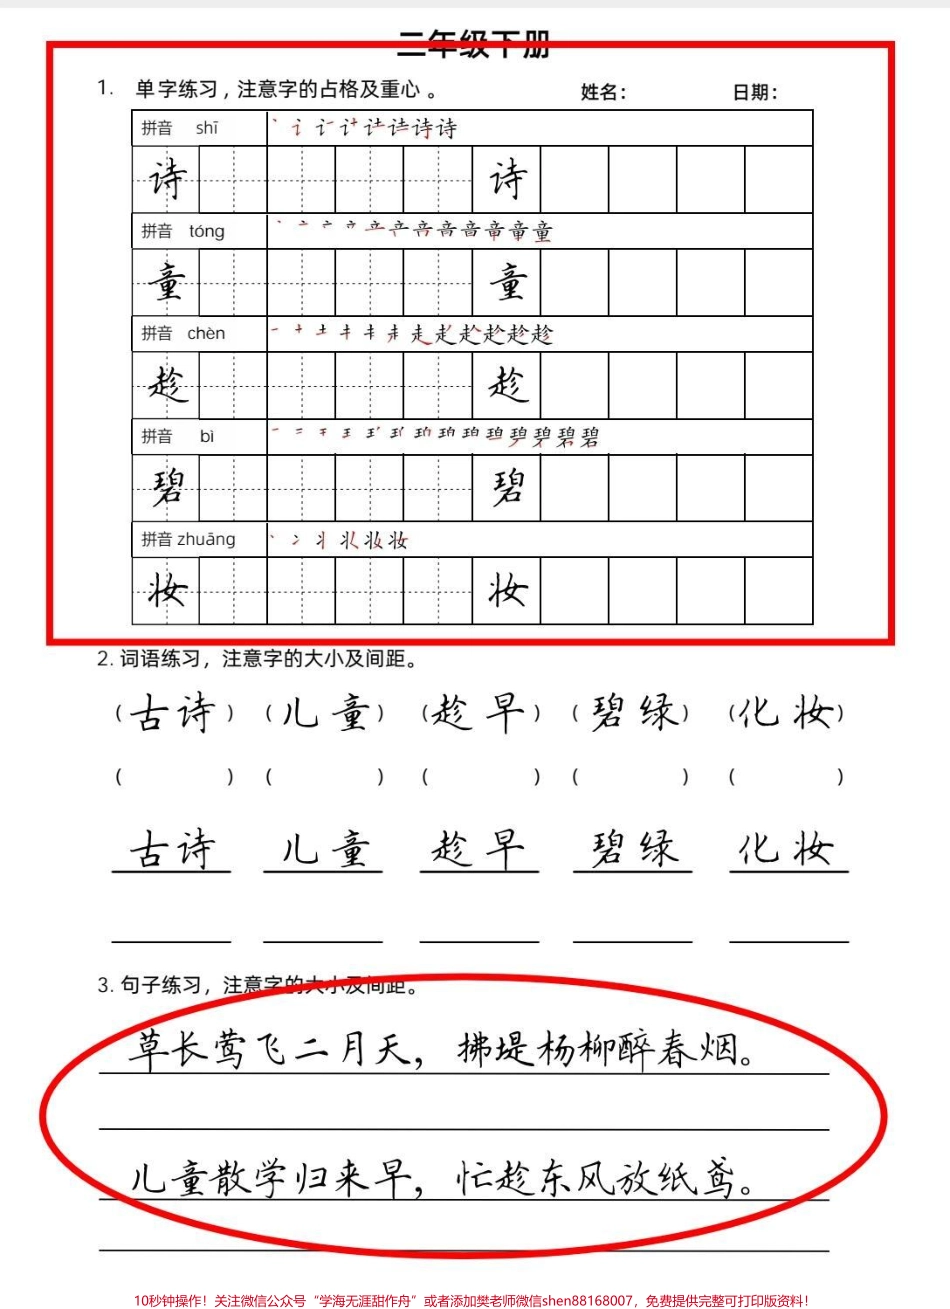 二年级下册
1. 单字练习，注意字的占格及重心。 姓名： 日期：
拼音 shī 诗诗
诗 诗
拼音 tóng 音音音童童童
童 童
拼音 chèn 走趁趁趁
趁 趁
拼音 bì 碧碧碧碧碧
碧 碧
拼音 zhuāng 妆妆
妆 妆
2. 词语练习，注意字的大小及间距。
（古诗）（儿童）（趁早）（碧绿）（化妆）
（ ）（ ）（ ）（ ）（ ）
古诗 儿童 趁早 碧绿 化妆
3. 句子练习，注意字的大小及间距。
草长莺飞二月天，拂堤杨柳醉春烟。
儿童散学归来早，忙趁东风放纸鸢。
10秒钟操作！关注微信公众号“学海无涯甜作舟”或者添加樊老师微信shen88168007，免费提供完整可打印版资料！